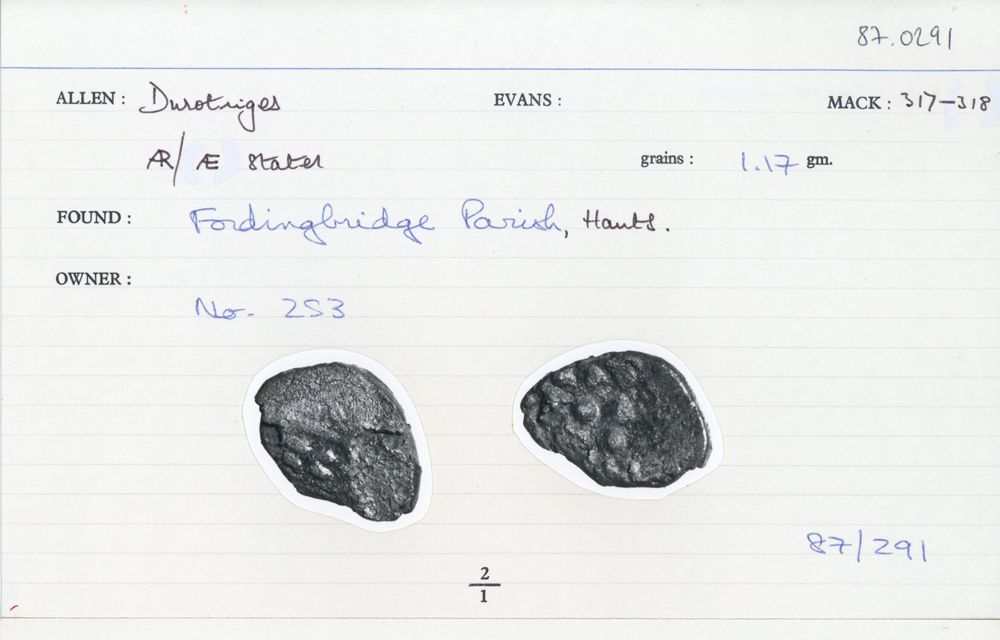 87.0291
ALLEN : Durotriges EVANS : MACK : 317-318
ÆR/Æ Stater grains : 1.17 gm.
FOUND : Fordingbridge Parish, Hants.
OWNER :
No. 253
87/291
2
1